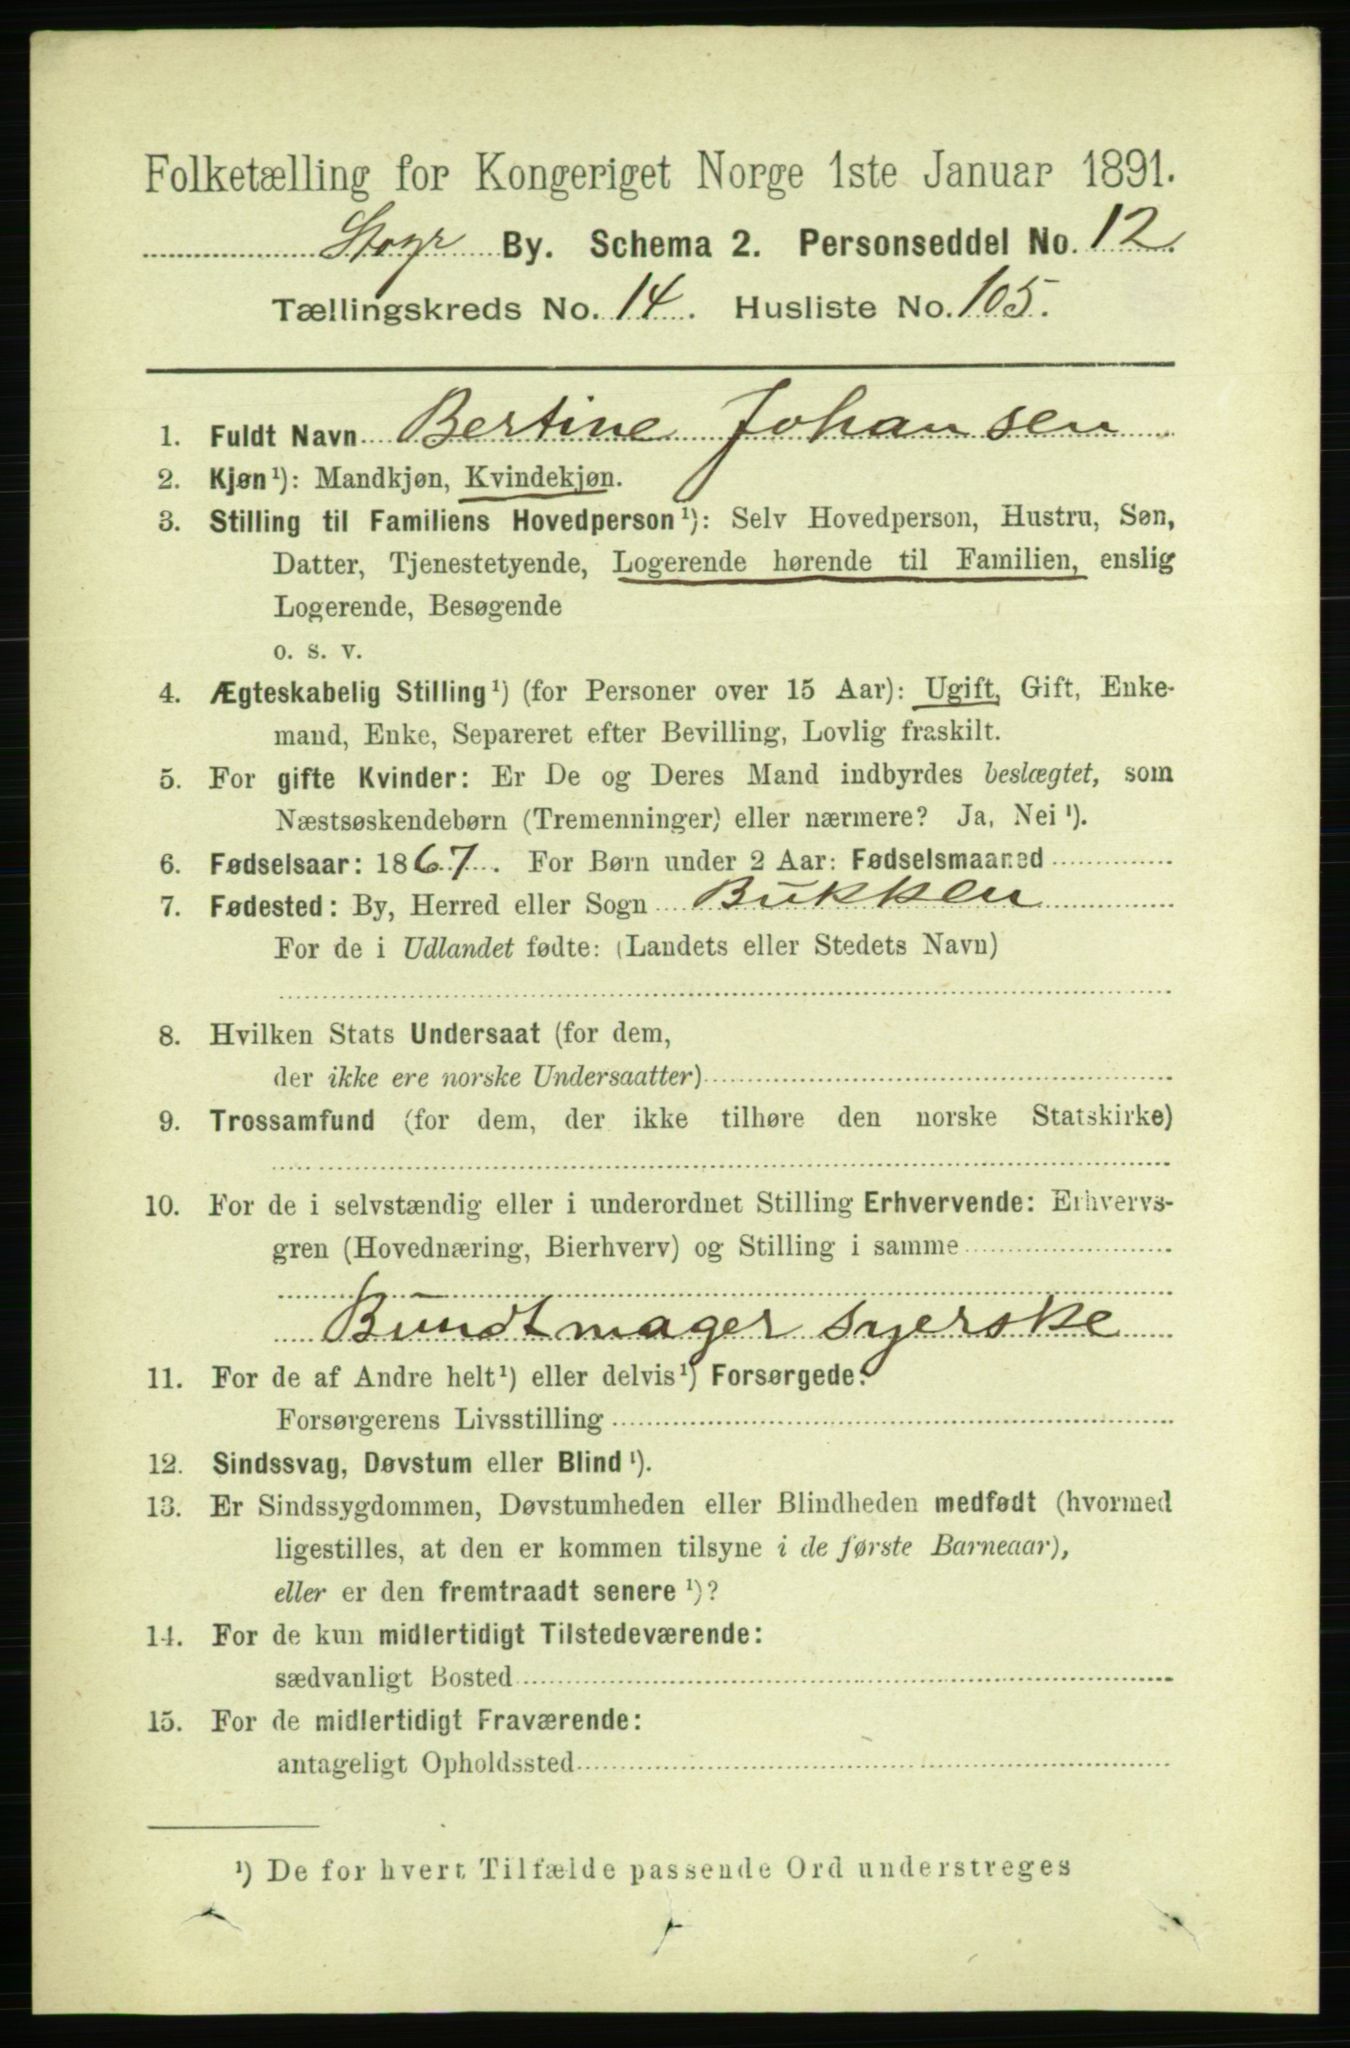 Folketælling for Kongeriget Norge 1ste Januar 1891.
Stvgr By. Schema 2. Personseddel No. 12.
Tællingskreds No. 14. Husliste No. 105.
1. Fuldt Navn Bertine Johansen
2. Kjøn¹): Mandkjøn, Kvindekjøn.
3. Stilling til Familiens Hovedperson¹): Selv Hovedperson, Hustru, Søn,
Datter, Tjenestetyende, Logerende hørende til Familien, enslig
Logerende, Besøgende
o. s. v.
4. Ægteskabelig Stilling¹) (for Personer over 15 Aar): Ugift, Gift, Enke-
mand, Enke, Separeret efter Bevilling, Lovlig fraskilt.
5. For gifte Kvinder: Er De og Deres Mand indbyrdes beslægtet, som
Næstsøskendebørn (Tremenninger) eller nærmere? Ja, Nei¹).
6. Fødselsaar: 1867. For Børn under 2 Aar: Fødselsmaaned
7. Fødested: By, Herred eller Sogn Bukken
For de i Udlandet fødte: (Landets eller Stedets Navn)
8. Hvilken Stats Undersaat (for dem,
der ikke ere norske Undersaatter)
9. Trossamfund (for dem, der ikke tilhøre den norske Statskirke)
10. For de i selvstændig eller i underordnet Stilling Erhvervende: Erhvervs-
gren (Hovednæring, Bierhverv) og Stilling i samme
Bundtmager syerske
11. For de af Andre helt¹) eller delvis¹) Forsørgede:
Forsørgerens Livsstilling
12. Sindssvag, Døvstum eller Blind¹).
13. Er Sindssygdommen, Døvstumheden eller Blindheden medfødt (hvormed
ligestilles, at den er kommen tilsyne i de første Barneaar),
eller er den fremtraadt senere¹)?
14. For de kun midlertidigt Tilstedeværende:
sædvanligt Bosted
15. For de midlertidigt Fraværende:
antageligt Opholdssted
¹) De for hvert Tilfælde passende Ord understreges